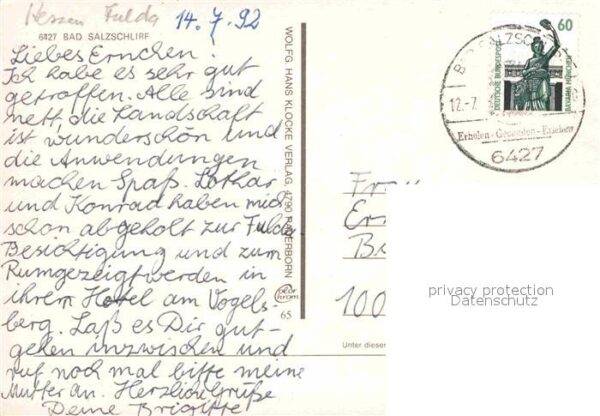 Hessen Fulda 14.7.92
6427 BAD SALZSCHLIRF
Liebes Ernchen!
Ich habe es sehr gut
getroffen. Alle sind
nett die Landschaft
ist wunderschön und
die Anwendungen
machen Spaß. Lothar
und Konrad haben mich
schon abgeholt zur Fulda-
Besichtigung und zum
Rumgezeigtwerden in
ihrem Hotel am Vogels-
berg. Laß es Dir gut-
gehen inzwischen und
ruf noch mal bitte meine
Mutter an. Herzliche Grüße
Deine Brigitte
WOLFG. HANS KLOCKE VERLAG, 4790 PADERBORN
65
60
DEUTSCHE BUNDESPOST
BAVARIA MÜNCHEN
12.-7.
Erholen - Gesunden - Erleben
6427
100
privacy protection
Datenschutz
Unter diesem